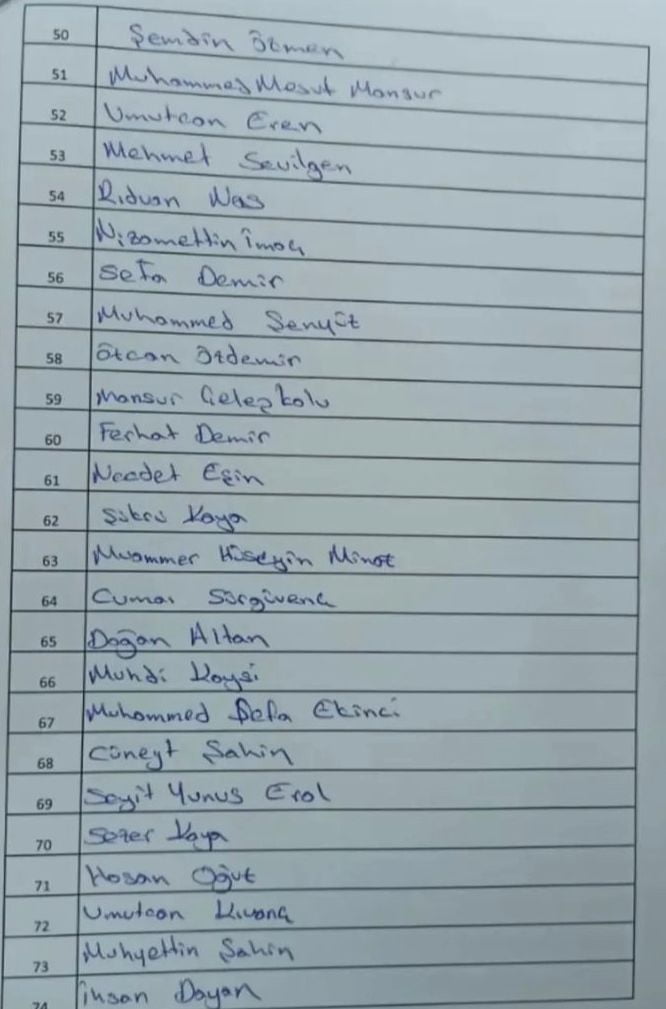 50 Şemdin Özmen
51 Muhammed Mesut Mansur
52 Umutcan Eren
53 Mehmet Sevilgen
54 Rıdvan Nas
55 Nizamettin İmaç
56 Sefa Demir
57 Muhammed Şenyüt
58 Özcan Özdemir
59 Mansur
60 Ferhat Demir
61 Necdet Eşin
62 Şükrü Kaya
63 Muammer Hüseyin Minaz
64 Cumai Sürgüvenç
65 Doğan Altan
66 Muhdi Kaysi
67 Muhammed Sefa Ekinci
68 Cüneyt Şahin
69 Seyit Yunus Erol
70 Sezer Kaya
71 Hasan Öğüt
72 Umutcan Kıvanç
73 Muhyettin Şahin
74 İhsan Doyan